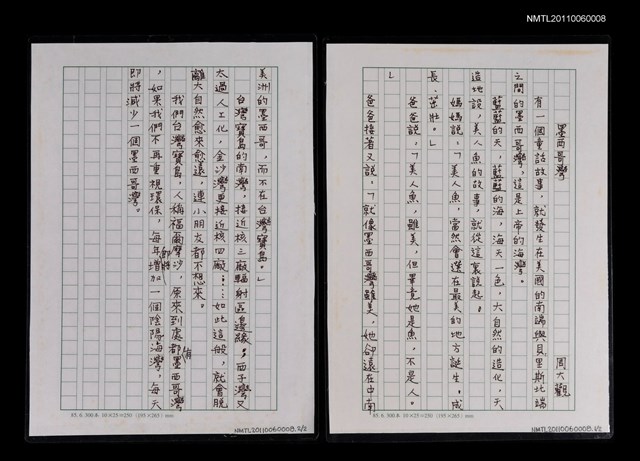 NMTL20110060008
墨西哥灣
周大觀
有一個童話故事，就發生在美國的南端與貝里斯北端
之間的墨西哥灣，這是上帝的海灣。
藍藍的天，藍藍的海，海天一色，大自然的造化，天
造地設，美人魚的故事，就從這裏說起。
媽媽說：「美人魚，當然會選在最美的地方誕生、成
長、茁壯。」
爸爸說：「美人魚，雖美，但畢竟她是魚，不是人。
」
爸爸接著又說：「就像墨西哥灣雖美，她卻遠在中南
85.6.300本 10×25=250 (195×265) mm
NMTL20110060008.1/2
美洲的墨西哥，而不在台灣寶島。」
台灣寶島的南灣，接近核三廠輻射區邊緣；西子灣又
太過人工化，金沙灣更接近核四廠……如此這般，就會脫
離大自然愈來愈遠，連小朋友都不想來。
我們台灣寶島，人稱福爾摩沙，原來到處都有墨西哥灣
，如果我們不再重視環保，每年都將增加一個陰陽海灣，每天
即將減少一個墨西哥灣。
85.6.300本 10×25=250 (195×265) mm
NMTL20110060008.2/2